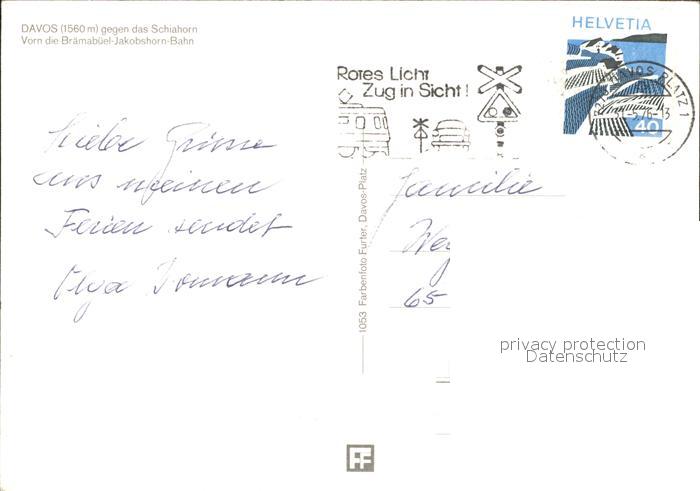 DAVOS (1560 m) gegen das Schiahorn
Vorn die Brämabüel-Jakobshorn-Bahn
HELVETIA
40
Rotes Licht
Zug in Sicht!
DAVOS PLATZ 1
Liebe Grüsse
aus meinen
Ferien sendet
Olga
Familie
We
65
1053 Farbenfoto Furter, Davos-Platz
privacy protection
Datenschutz
FF